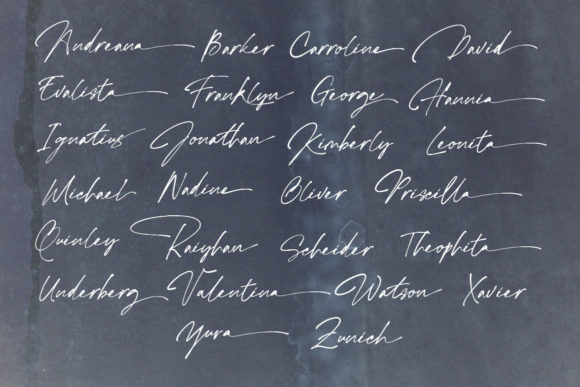 Andreana Barker Carroline David
Evalista Franklyn George Hannia
Ignatius Jonathan Kimberly Leonita
Michael Nadine Oliver Priscilla
Quinley Raiyhan Scheider Theophita
Underberg Valentina Watson Xavier
Yura Zunich